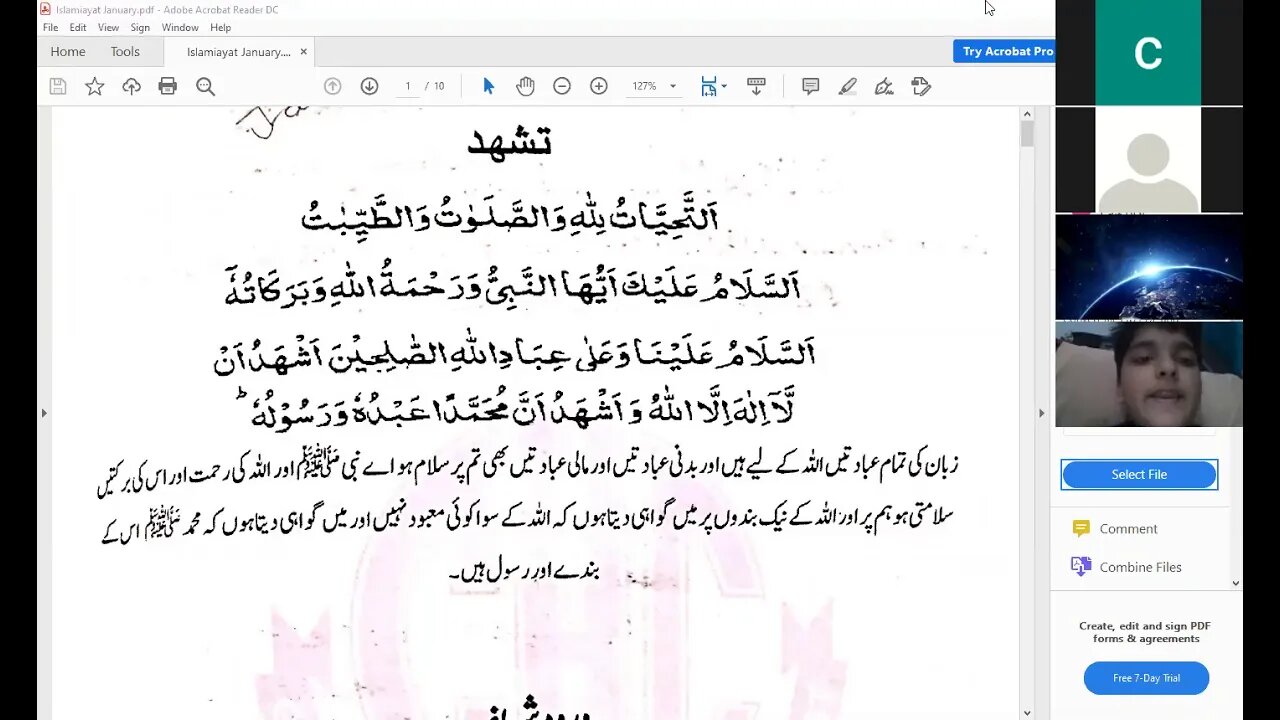 Islamiayat January.pdf - Adobe Acrobat Reader DC
File Edit View Sign Window Help
Home Tools Islamiayat January.... ×
Try Acrobat Pro
1 / 10 127%
C
تشهد
اَلتَّحِيَّاتُ لِلّٰهِ وَالصَّلَوٰتُ وَالطَّيِّبٰتُ
اَلسَّلَامُ عَلَيْكَ اَيُّهَا النَّبِيُّ وَرَحْمَةُ اللّٰهِ وَبَرَكَاتُهٗ
اَلسَّلَامُ عَلَيْنَا وَعَلٰى عِبَادِ اللّٰهِ الصّٰلِحِيْنَ اَشْهَدُ اَنْ
لَّآ اِلٰهَ اِلَّا اللّٰهُ وَ اَشْهَدُ اَنَّ مُحَمَّدًا عَبْدُهٗ وَ رَسُوْلُهٗ ؕ
زبان کی تمام عبادتیں اللہ کے لیے ہیں اور بدنی عبادتیں اور مالی عبادتیں بھی تم پر سلام ہو اے نبی ﷺ اور اللہ کی رحمت اور اس کی برکتیں
سلامتی ہو ہم پر اور اللہ کے نیک بندوں پر میں گواہی دیتا ہوں کہ اللہ کے سوا کوئی معبود نہیں اور میں گواہی دیتا ہوں کہ محمد ﷺ اس کے
بندے اور رسول ہیں۔
Select File
Comment
Combine Files
Create, edit and sign PDF
forms & agreements
Free 7-Day Trial